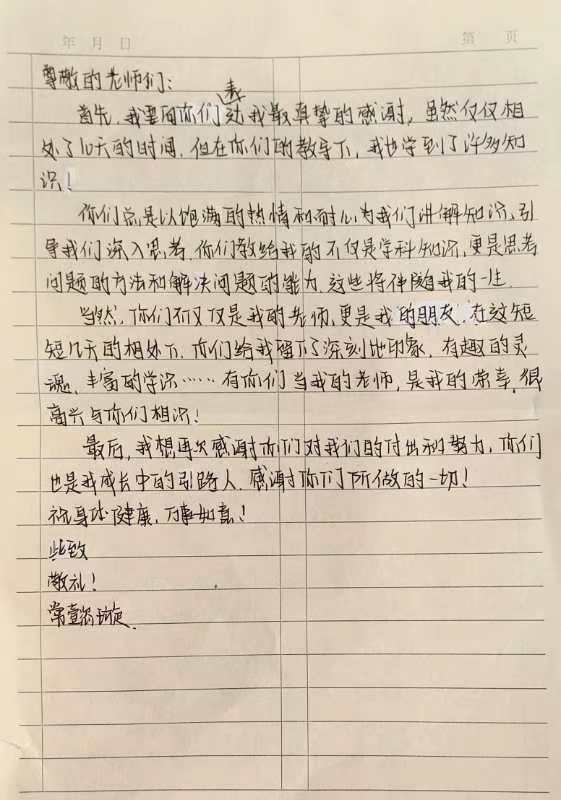 年 月 日 第 页
尊敬的老师们:
首先,我要向你们表达我最真挚的感谢,虽然仅仅相
处了几天的时间,但在你们的教导下,我也学到了许多知
识!
你们总是以饱满的热情和耐心为我们讲解知识,引
导我们深入思考,你们教给我的不仅是学科知识,更是思考
问题的方法和解决问题的能力,这些将伴随我的一生.
当然,你们不仅仅是我的老师,更是我的朋友,在这短
短几天的相处下,你们给我留下了深刻地印象,有趣的灵
魂、丰富的学识……有你们当我的老师,是我的荣幸,很
高兴与你们相识!
最后,我想再次感谢你们对我们的付出和努力,你们
也是我成长中的引路人.感谢你们所做的一切!
祝身体健康,万事如意!
此致
敬礼!